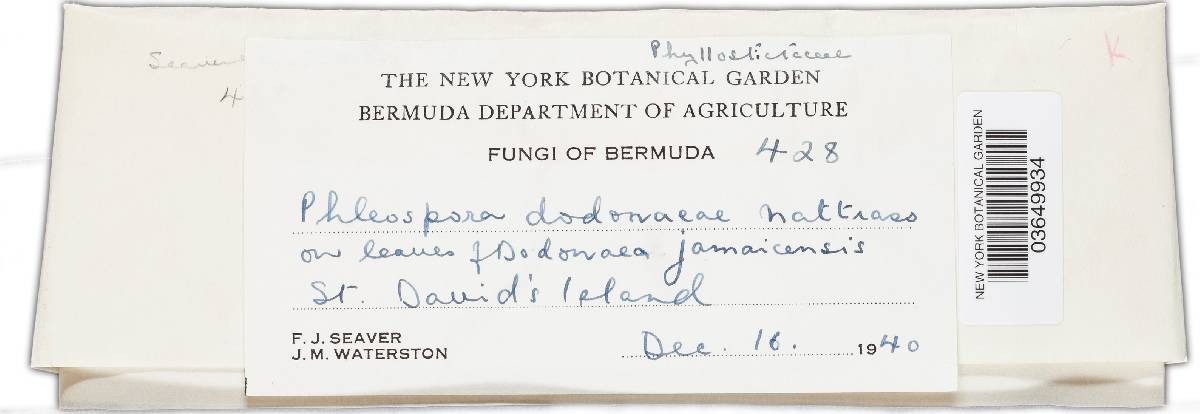 Phyllostictaceae
THE NEW YORK BOTANICAL GARDEN
BERMUDA DEPARTMENT OF AGRICULTURE
FUNGI OF BERMUDA 428
Phleospora dodonaeae Nattrass
on leaves of Dodonaea jamaicensis
St. David's Island
F. J. SEAVER
J. M. WATERSTON
Dec. 16. 1940
Seaver
4
K
NEW YORK BOTANICAL GARDEN
03649934